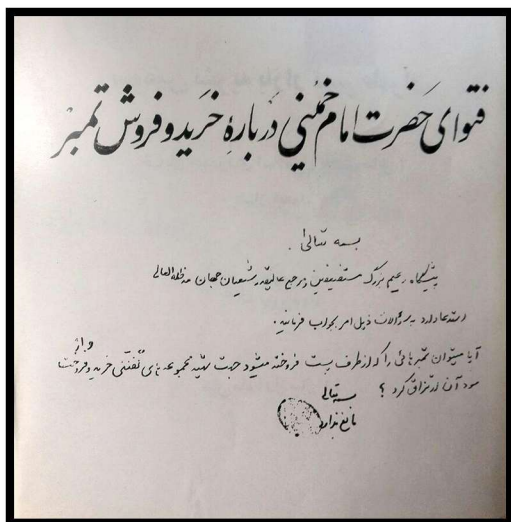 فتوای حضرت امام خمینی دربارهٔ خرید و فروش تمبر
بسمه تعالی
پیشگاه زعیم بزرگ مستضعفین و مرجع عالیقدر شیعیان جهان مدظله العالی
استدعا دارد به سؤالات ذیل امر بجواب فرمائید.
آیا میتوان تمبرهائی را که از طرف پست فروخته میشود جهت تهیه مجموعه های تفننی خرید و فروخت و از
سود آن ارتزاق کرد ؟
بسمه تعالی
مانع ندارد